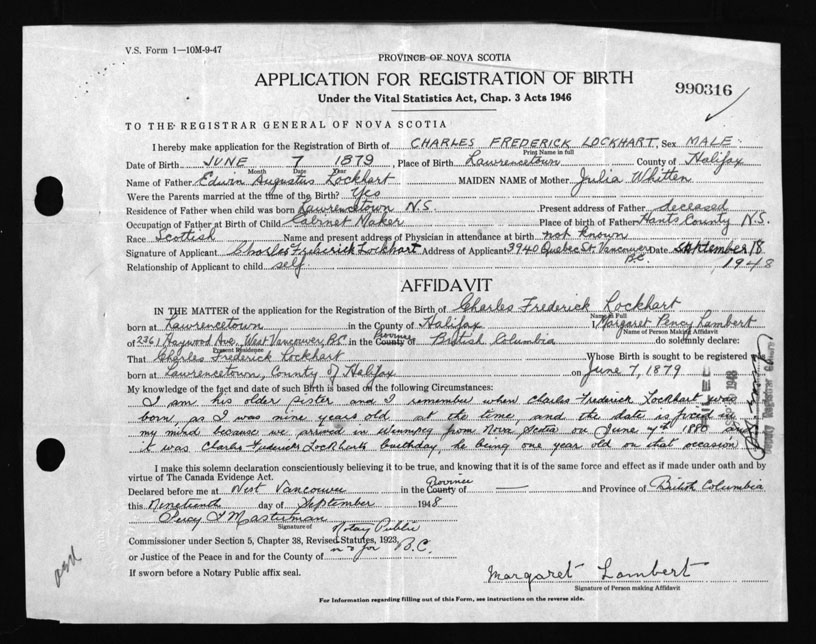 V.S. Form 1—10M-9-47
PROVINCE OF NOVA SCOTIA
APPLICATION FOR REGISTRATION OF BIRTH
Under the Vital Statistics Act, Chap. 3 Acts 1946
990316
TO THE REGISTRAR GENERAL OF NOVA SCOTIA
I hereby make application for the Registration of Birth of CHARLES FREDERICK LOCKHART, Sex MALE
Print Name in full
Date of Birth JUNE 7 1879, Place of Birth Lawrencetown County of Halifax
Month Date Year
Name of Father Edwin Augustus Lockhart MAIDEN NAME of Mother Julia Whitten
Were the Parents married at the time of the Birth? Yes
Residence of Father when child was born Lawrencetown N.S. Present address of Father deceased
Occupation of Father at Birth of Child Cabinet Maker Place of birth of Father Hants County N.S.
Race Scottish Name and present address of Physician in attendance at birth not known
Signature of Applicant Charles Frederick Lockhart Address of Applicant 3940 Quebec St. Vancouver B.C. Date September 18
Relationship of Applicant to child self 1948
AFFIDAVIT
IN THE MATTER of the application for the Registration of the Birth of Charles Frederick Lockhart
Name in Full
born at Lawrencetown in the County of Halifax Margaret Percy Lambert
Name of Person Making Affidavit
of 2361 Haywood Ave., West Vancouver, B.C. in the County of Province British Columbia do solemnly declare:
Present Residence
That Charles Frederick Lockhart Whose Birth is sought to be registered
born at Lawrencetown, County of Halifax on June 7, 1879
My knowledge of the fact and date of such Birth is based on the following Circumstances:
I am his older sister and I remember when Charles Frederick Lockhart was
born, as I was nine years old at the time, and the date is fixed in
my mind because we arrived in Winnipeg from Nova Scotia on June 7th 1880 and
it was Charles Frederick Lockharts birthday, he being one year old on that occasion
I make this solemn declaration conscientiously believing it to be true, and knowing that it is of the same force and effect as if made under oath and by
virtue of The Canada Evidence Act.
Declared before me at West Vancouver in the County of Province — and Province of British Columbia
this Nineteenth day of September 1948
Percy Masterman
Signature of Notary Public
Commissioner under Section 5, Chapter 38, Revised Statutes, 1923,
or Justice of the Peace in and for the County of in & for B.C.
If sworn before a Notary Public affix seal.
Margaret Lambert
Signature of Person making Affidavit
For Information regarding filling out of this Form, see instructions on the reverse side.